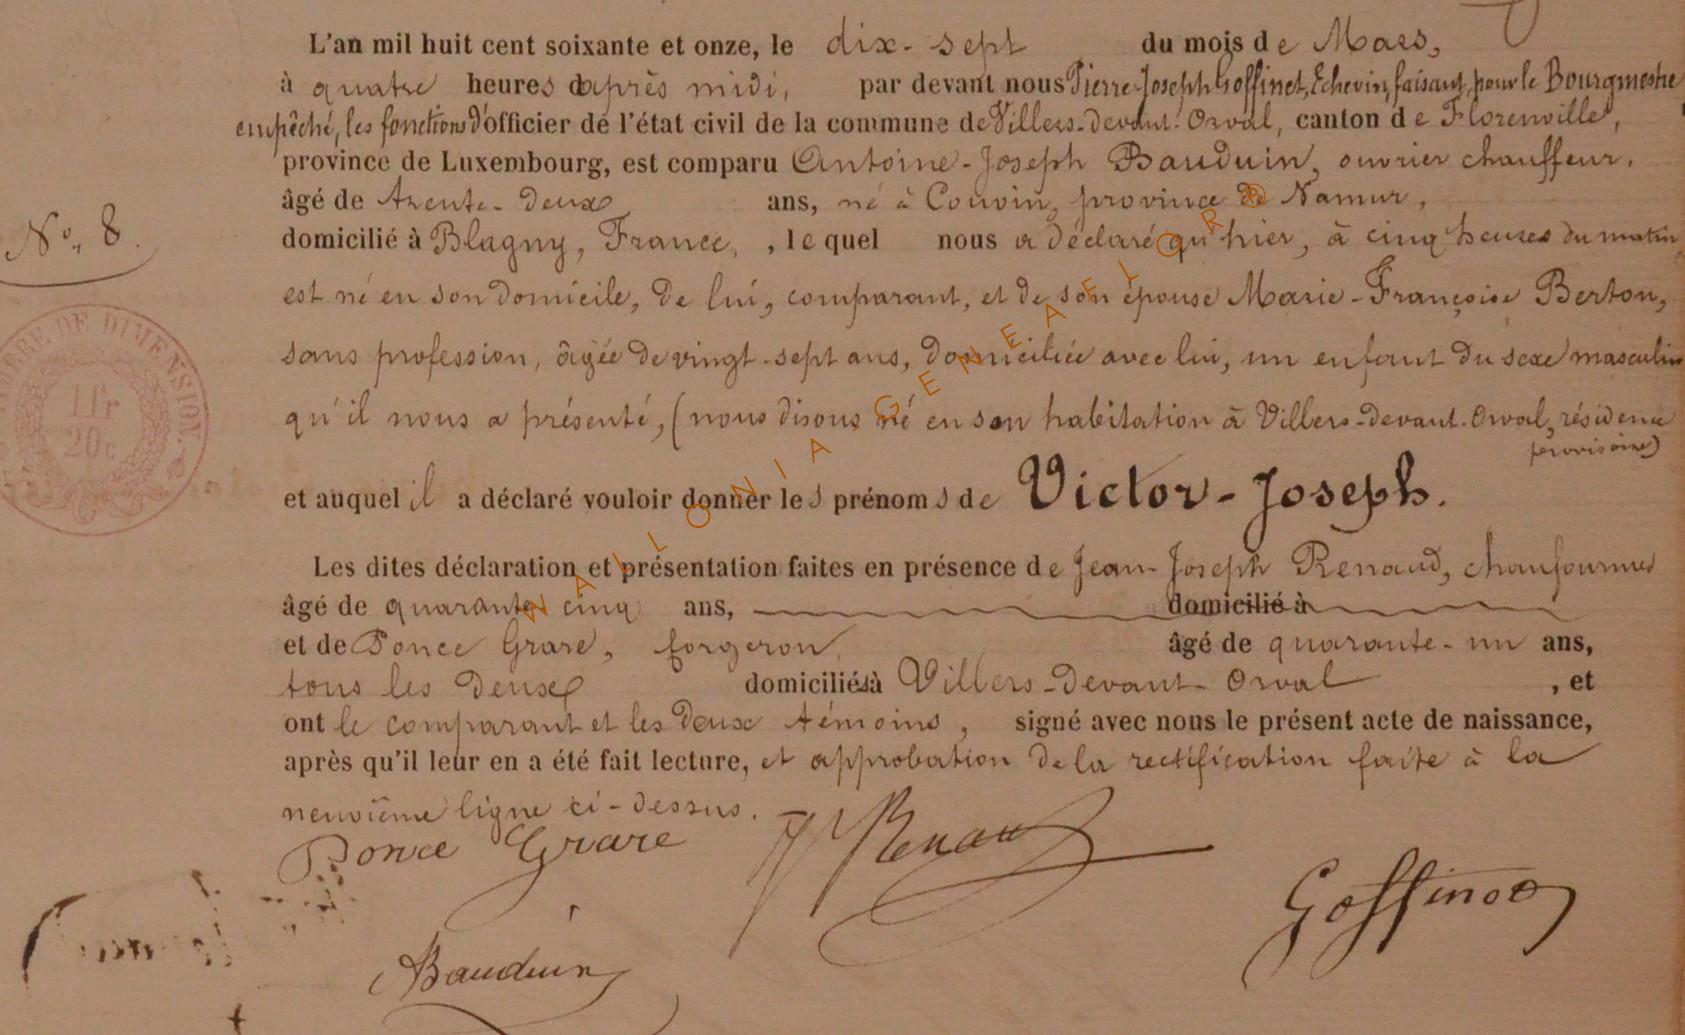 L'an mil huit cent soixante et onze, le dix-sept du mois de Mars,
à quatre heures après midi, par devant nous Pierre-Joseph Goffinet, Echevin, faisant, pour le Bourgmestre
empêché, les fonctions d'officier de l'état civil de la commune de Villers-devant-Orval, canton de Florenville,
province de Luxembourg, est comparu Antoine-Joseph Bauduin, ouvrier chauffeur,
âgé de trente-deux ans, né à Couvin, province de Namur,
N° 8.
domicilié à Blagny, France, , lequel nous a déclaré qu'hier, à cinq heures du matin
est né en son domicile, de lui, comparant, et de son épouse Marie-Françoise Berton,
sans profession, âgée de vingt-sept ans, domiciliée avec lui, un enfant du sexe masculin
qu'il nous a présenté, (nous disons né en son habitation à Villers-devant-Orval, résidence
provisoire)
et auquel il a déclaré vouloir donner les prénoms de Victor-Joseph.
Les dites déclaration et présentation faites en présence de Jean-Joseph Renaud, chaufournier
âgé de quarante cinq ans, domicilié à
et de Ponce Grare, forgeron, âgé de quarante-un ans,
tous les deux domiciliés à Villers-devant-Orval , et
ont le comparant et les deux témoins, signé avec nous le présent acte de naissance,
après qu'il leur en a été fait lecture, et approbation de la rectification faite à la
neuvième ligne ci-dessus.
Ponce Grare JJ Renaud
Goffinet
ABauduin
TIMBRE DE DIMENSION.
1 fr
20 c
WALLONIA GENEAFLOR®